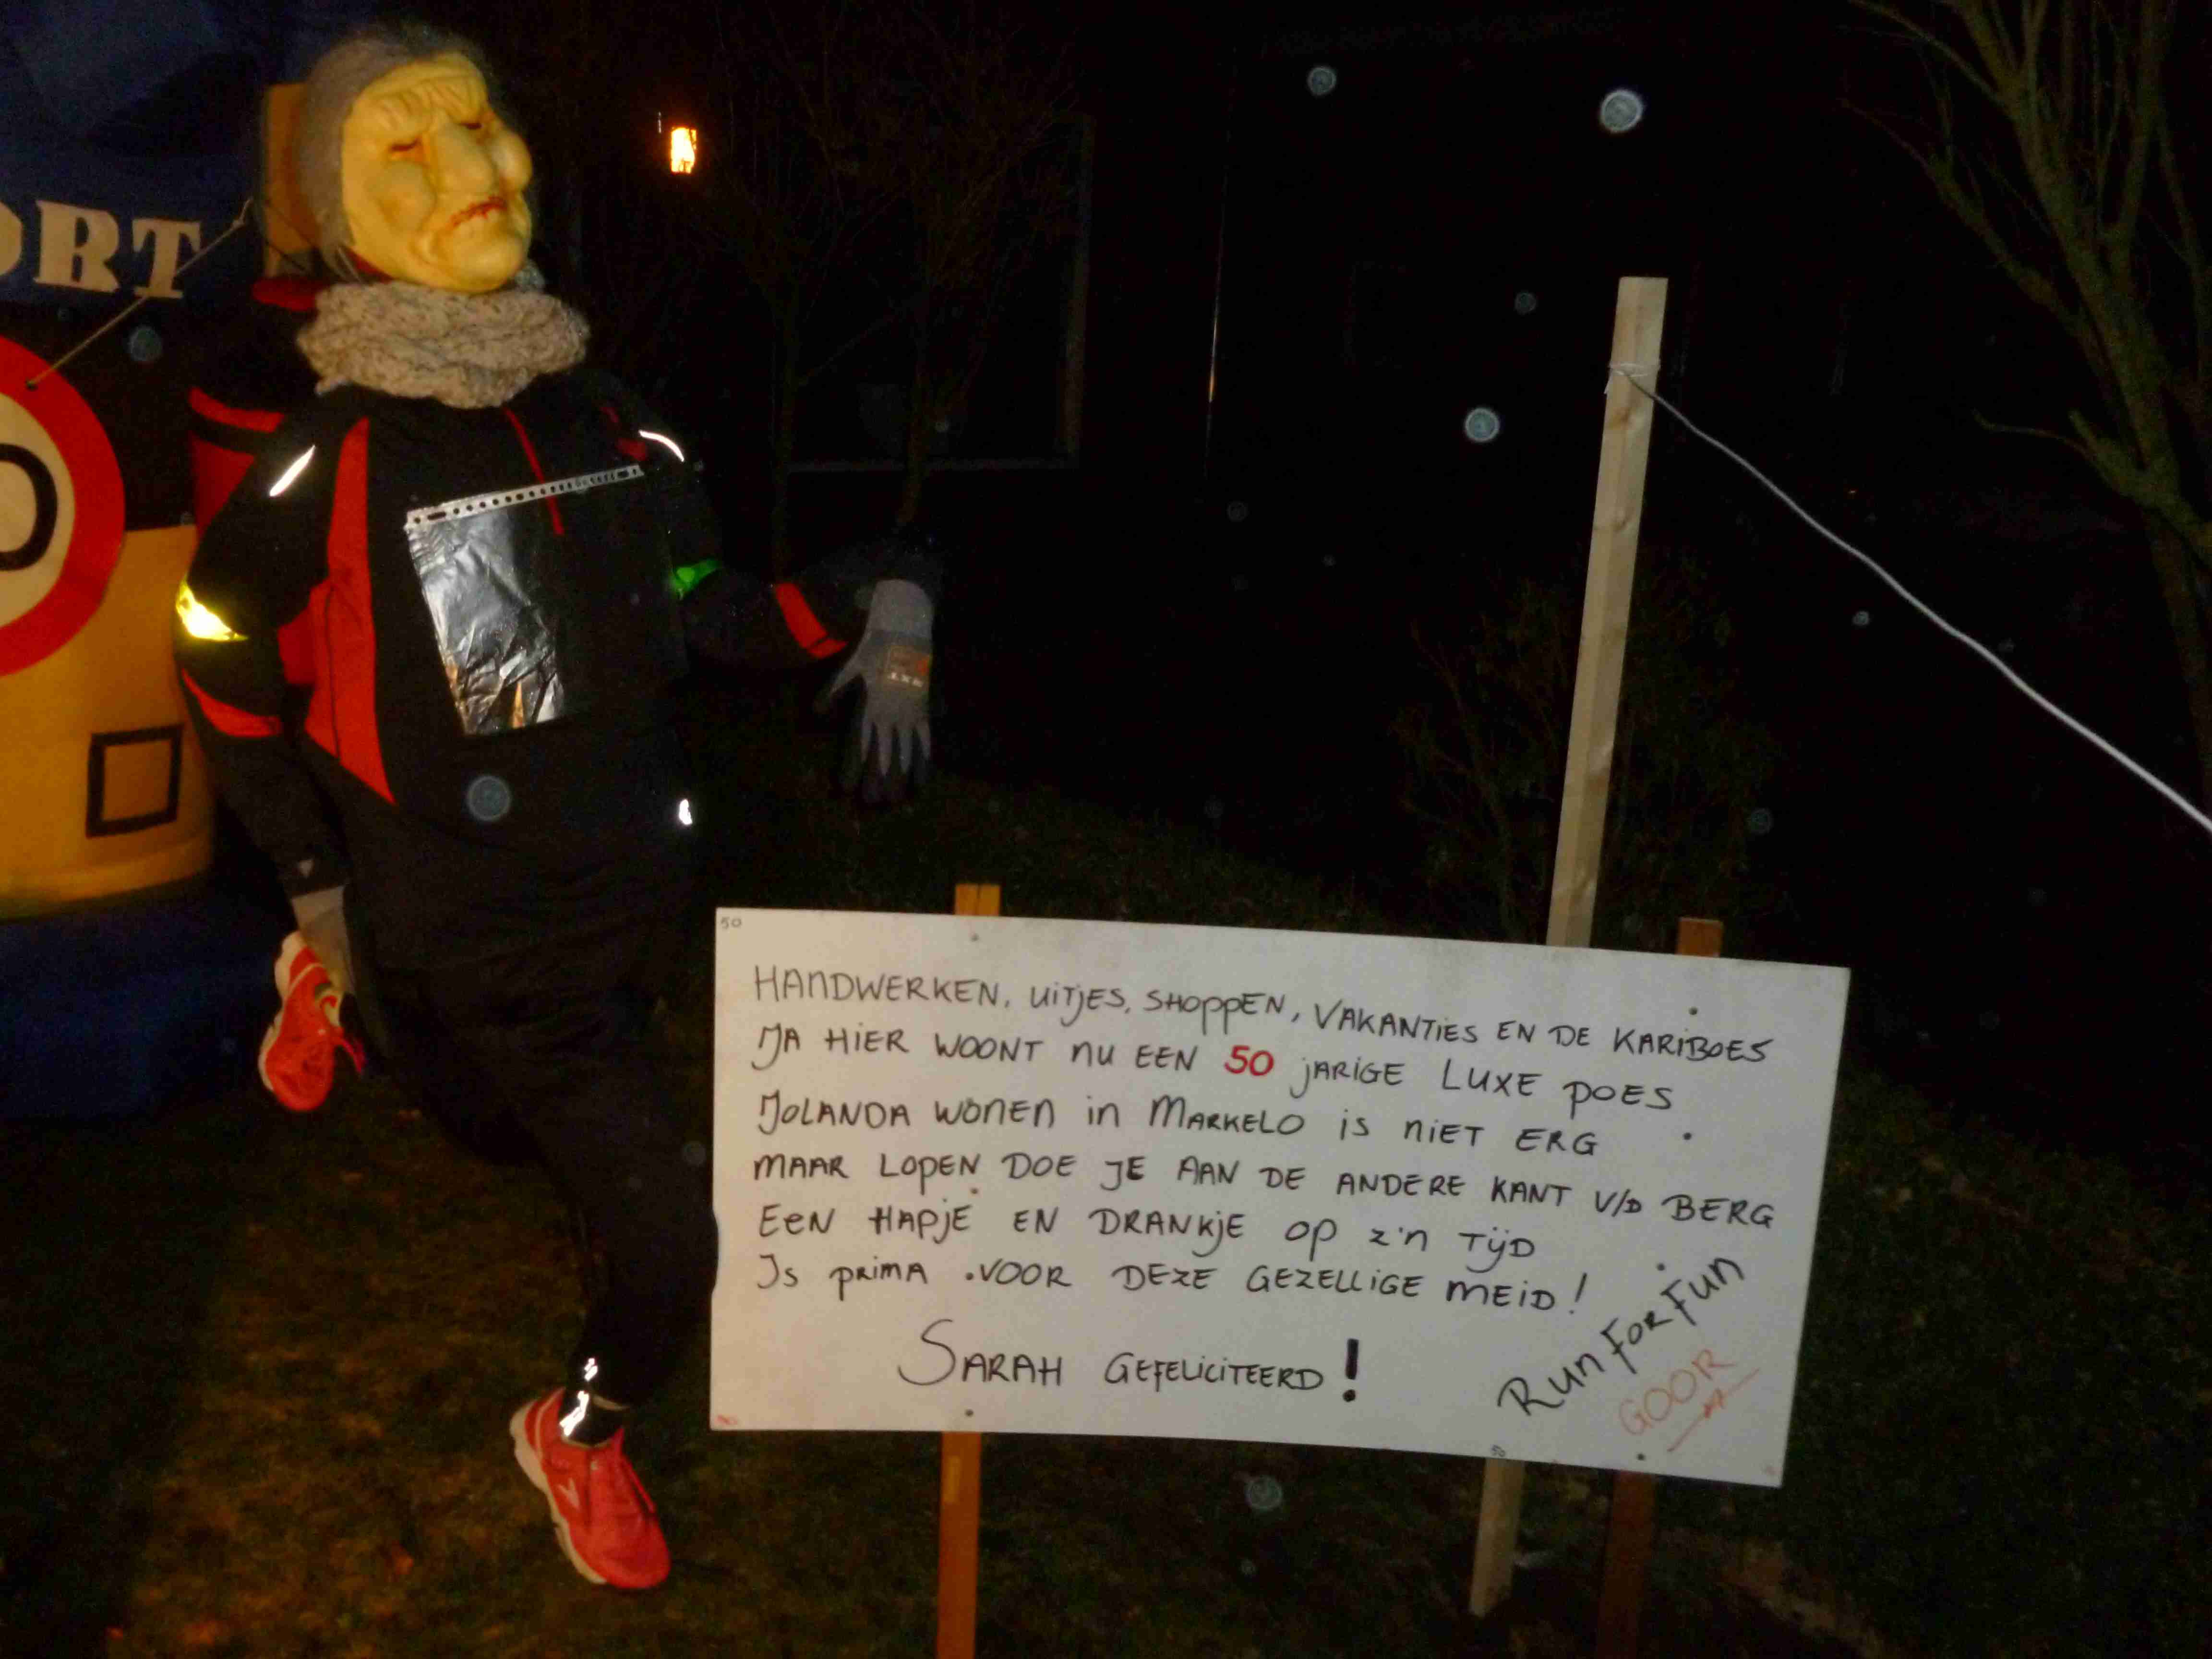 ORT
50
HANDWERKEN, UITJES, SHOPPEN, VAKANTIES EN DE KARIBOES
JA HIER WOONT NU EEN 50 JARIGE LUXE POES
JOLANDA WONEN in MARKELO is niET ERG
MAAR LOPEN DOE JE AAN DE ANDERE KANT V/D BERG
EEN HAPJE EN DRANKJE OP z'n TIJD
Is prima VOOR DEZE GEZELLIGE MEID!
SARAH GEFELICITEERD!
Run For Fun
GOOR
50